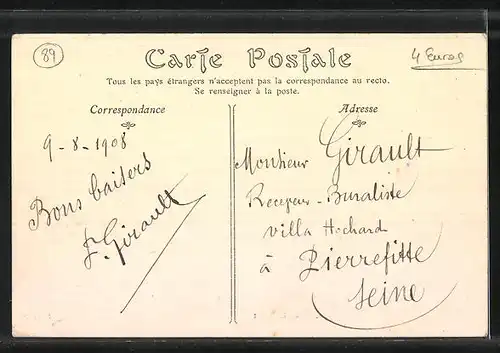 89
4 Euros
Carte Postale
Tous les pays étrangers n'acceptent pas la correspondance au recto.
Se renseigner à la poste.
Correspondance
9-8-1908
Bons baisers
Girault
Adresse
Monsieur Girault
Receveur-Buraliste
Villa Hochard
à Pierrefitte
Seine